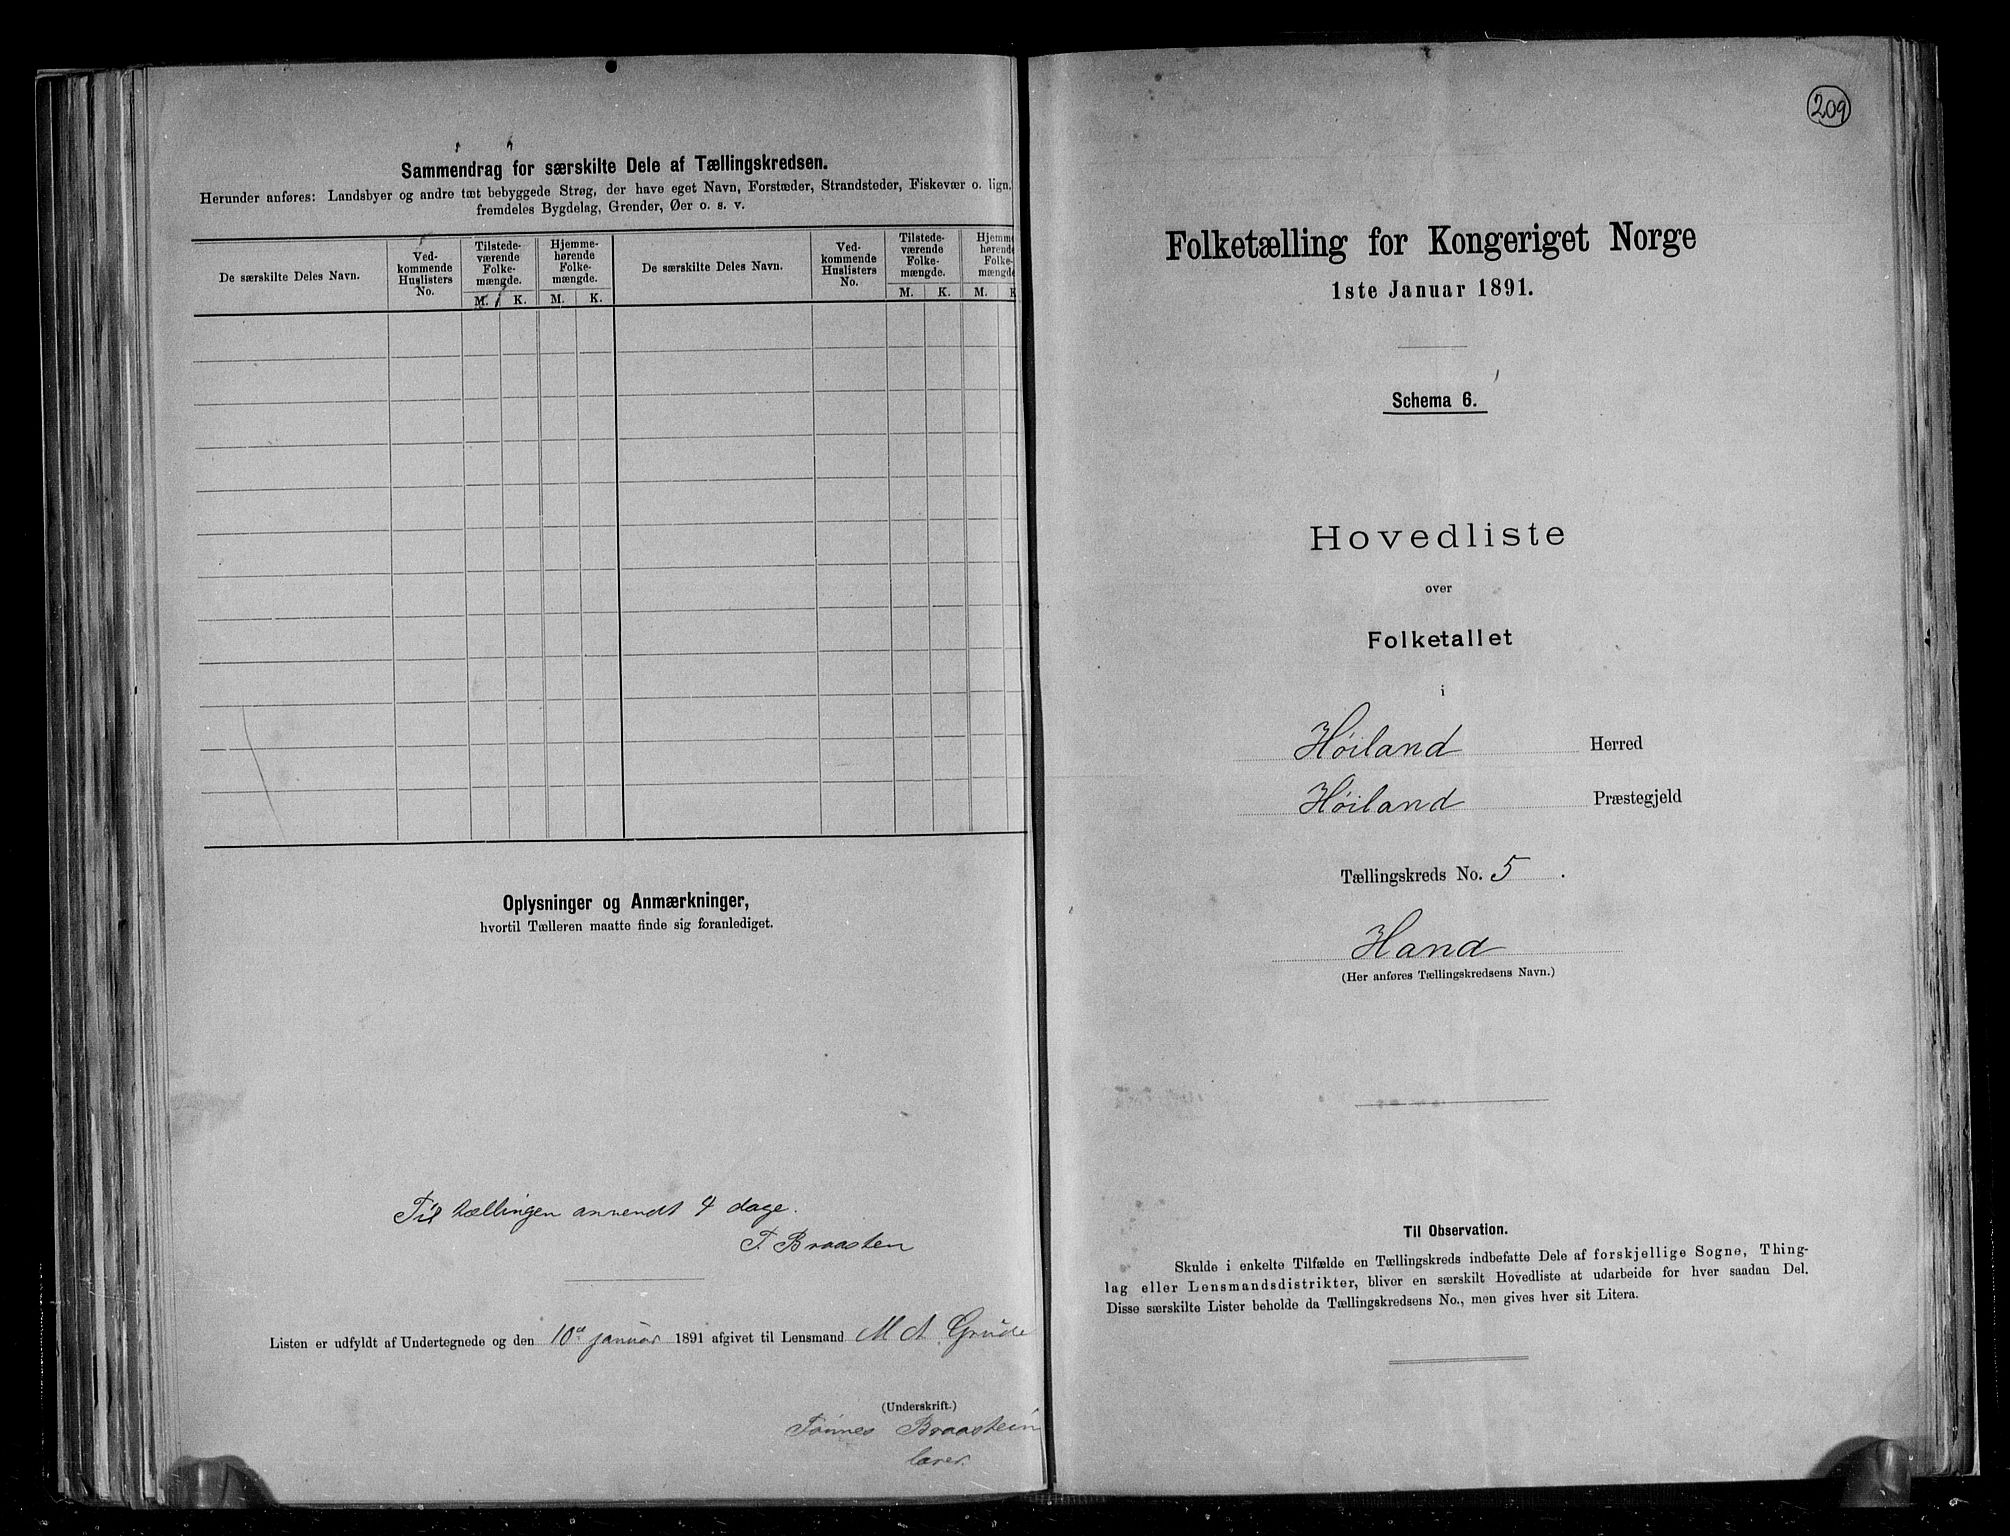 Sammendrag for særskilte Dele af Tællingskredsen.
Herunder anføres: Landsbyer og andre tæt bebyggede Strøg, der have eget Navn, Forstæder, Strandsteder, Fiskevær o. lign.
fremdeles Bygdelag, Grender, Øer o. s. v.
De særskilte Deles Navn.
Ved-
kommende
Huslisters
No.
Tilstede-
værende
Folke-
mængde.
M. K.
Hjemme-
hørende
Folke-
mængde.
M. K.
De særskilte Deles Navn.
Ved-
kommende
Huslisters
No.
Tilstede-
værende
Folke-
mængde.
M. K.
Hjemme
hørende
Folke-
mængde
M. K
Oplysninger og Anmærkninger,
hvortil Tælleren maatte finde sig foranlediget.
Til tællingen anvendt 4 dage.
T. Braasten
Listen er udfyldt af Undertegnede og den 10de januar 1891 afgivet til Lensmand M A. Grude
(Underskrift.)
Tønnes Braastein
lærer.
209
Folketælling for Kongeriget Norge
1ste Januar 1891.
Schema 6.
Hovedliste
over
Folketallet
i
Høiland Herred
Høiland Præstegjeld
Tællingskreds No. 5.
Hand
(Her anføres Tællingskredsens Navn.)
Til Observation.
Skulde i enkelte Tilfælde en Tællingskreds indbefatte Dele af forskjellige Sogne, Thing-
lag eller Lensmandsdistrikter, bliver en særskilt Hovedliste at udarbeide for hver saadan Del.
Disse særskilte Lister beholde da Tællingskredsens No., men gives hver sit Litera.